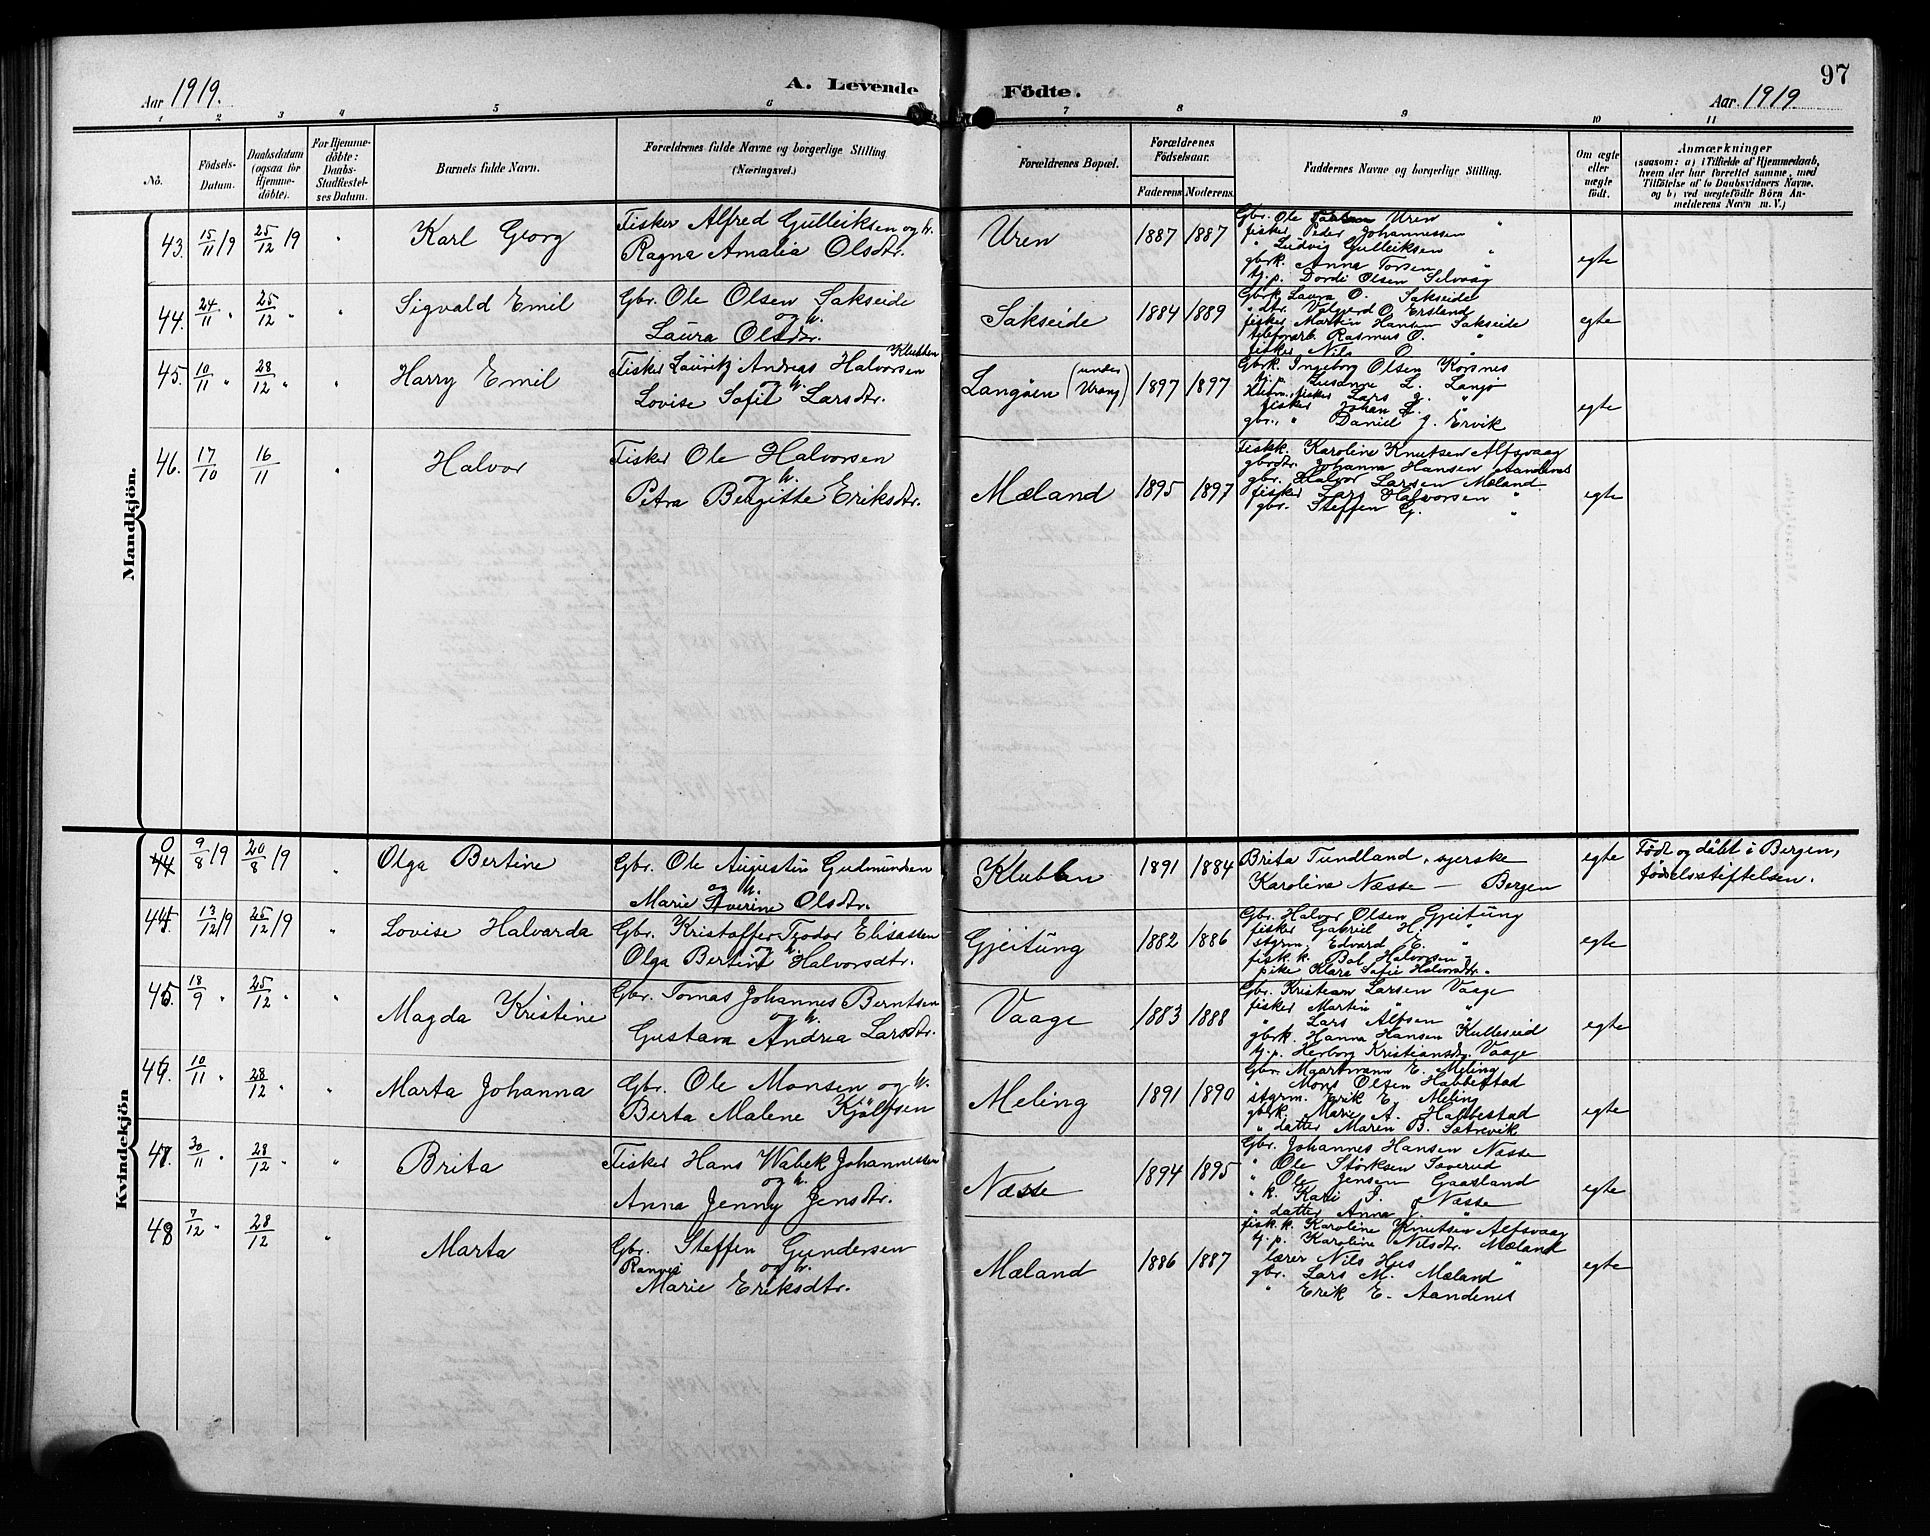 97
Aar 1919.
A. Levende Födte.
Aar 1919.
1 2 3 4 5 6 7 8 9 10 11
No.
Födsels-Datum.
Daabsdatum (ogsaa for Hjemme-döbte).
For Hjemme-döbte: Daabs-Stadfæstel-ses Datum.
Barnets fulde Navn.
Forældrenes fulde Navne og borgerlige Stilling (Næringsvei.)
Forældrenes Bopæl.
Forældrenes Födselsaar.
Faderens. Moderens.
Faddernes Navne og borgerlige Stilling.
Om ægte eller uægte födt.
Anmærkninger
(saasom: a) i Tilfælde af Hjemmedaab, hvem der har forrettet samme, med Tilföielse af to Daabsvidners Navne. og b) ved uægtefödte Börn An-melderens Navn m. V.)
Mandkjön.
43. 15/11 19 25/12 19 " Karl Georg
Fisker Alfred Gulleiksen og h.
Ragna Amalia Olsdtr.
Uren 1887 1887
Gbr. Ole Uren
fisker Peder Johannessen "
" Ludvig Gulleiksen "
gbrk. Anna Torsen "
tj.p. Dordi Olsen Selvaag
egte
44. 24/11 " 25/12 " " Sigvald Emil
Gbr. Ole Olsen Sakseide
og h.
Laura Olsdtr.
Sakseide 1884 1889
Gbrk. Laura O. Sakseide
" dtr. Valgerd O. Ersland
fisker Martin Hansen Sakseide
telefonarb. Rasmus O. "
fisker Nils O. "
egte
45. 10/11 " 28/12 " " Harry Emil
Fisker Lauritz Andreas Halvorsen Klubben
og h.
Lovise Sofie Larsdtr.
Langöen (under Urang) 1897 1897
Gbrk. Ingeborg Olsen Korsnes
tj.p. Susanne L. Langö
fisker Lars J. "
fisker Johan L. "
gbr. " Daniel J. Ervik
egte
46. 17/10 16/11 " Halvor
Fisker Ole Halvorsen
og h.
Petra Bergitte Eriksdtr.
Mæland 1895 1897
Fiskk. Karoline Knutsen Alfsvaag
gbrdtr. Johanna Hansen Aandenes
gbr. Halvor Larsen Mæland
fisker Lars Halvorsen "
gbr. Steffen G. "
egte
Kvindekjön
9/8 19 20/8 19 " Olga Bertine
Gbr. Ole Augustin Gudmundsen
og h.
Marie Severine Olsdtr.
Klubben 1891 1884
Brita Tundland, syerske
Karoline Næsse — Bergen
egte
Födt og döbt i Bergen,
födselsstiftelsen.
44. 13/12 19 25/12 19 " Lovise Halvarda
Gbr. Kristoffer Teodor Eliassen
og h.
Olga Bertine Halvorsdtr.
Gjeitung 1882 1886
Gbr. Halvor Olsen Gjeitung
fisker Gabriel H. "
styrm. Edvard E. "
fisk.k. Bol. Halvorsen "
pike Klara Sofie Halvorsdtr. "
egte
45. 18/9 " 25/12 " " Magda Kristine
Gbr. Tomas Johannes Berntsen
og h.
Gustava Andrea Larsdtr.
Vaage 1883 1888
Gbr. Kristian Larsen Vaage
fisker Martin " "
" Lars Alfsen "
gbrk. Hanna Hansen Kulleseid
tj.p. Herborg Kristiansdtr. Vaage
egte
46. 10/11 " 28/12 " " Marta Johanna
Gbr. Ole Monsen og h.
Berta Malene Kjölfsen
Meling 1891 1890
Gbr. Maartmann E. Meling
" Mons Olsen Habbestad
styrm. Erik E. Meling
gbrk. Marie A. Habbestad
" datter Maren B. Sætrevik
egte
47. 30/11 " 28/12 " " Brita
Fisker Hans Wabek Johannessen
og h.
Anna Jenny Jensdtr.
Næsse 1894 1895
Gbr. Johannes Hansen Næsse
" Ole Störksen Saverud
" Ole Jensen Gaasland
" k. Kari J. Næsse
" datter Anna J. "
egte
48 7/12 " 28/12 " Marta
Gbr. Steffen Gundersen
og h.
Rannei
Marie Eriksdtr.
Mæland 1886 1887
fisk.k. Karoline Knutsen Alfsvaag
tj.p. Karoline Nilsdtr. Mæland
lærer Nils Hus "
gbr. Lars M. Mæland
" Erik E. Aandenes
egte